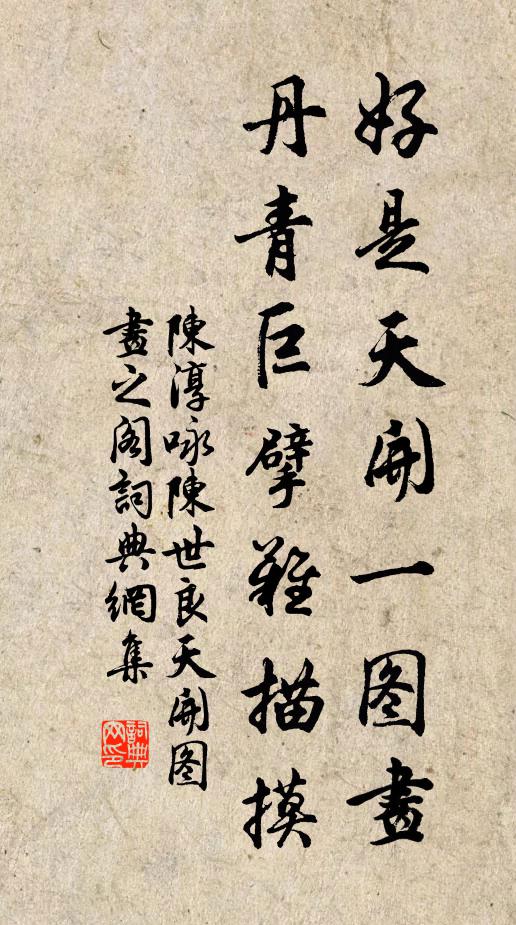 好是天開一图畫
丹青巨擘難描摸
陳淳咏陳世良天開图
畫之阁詞典網集
詞典
网印